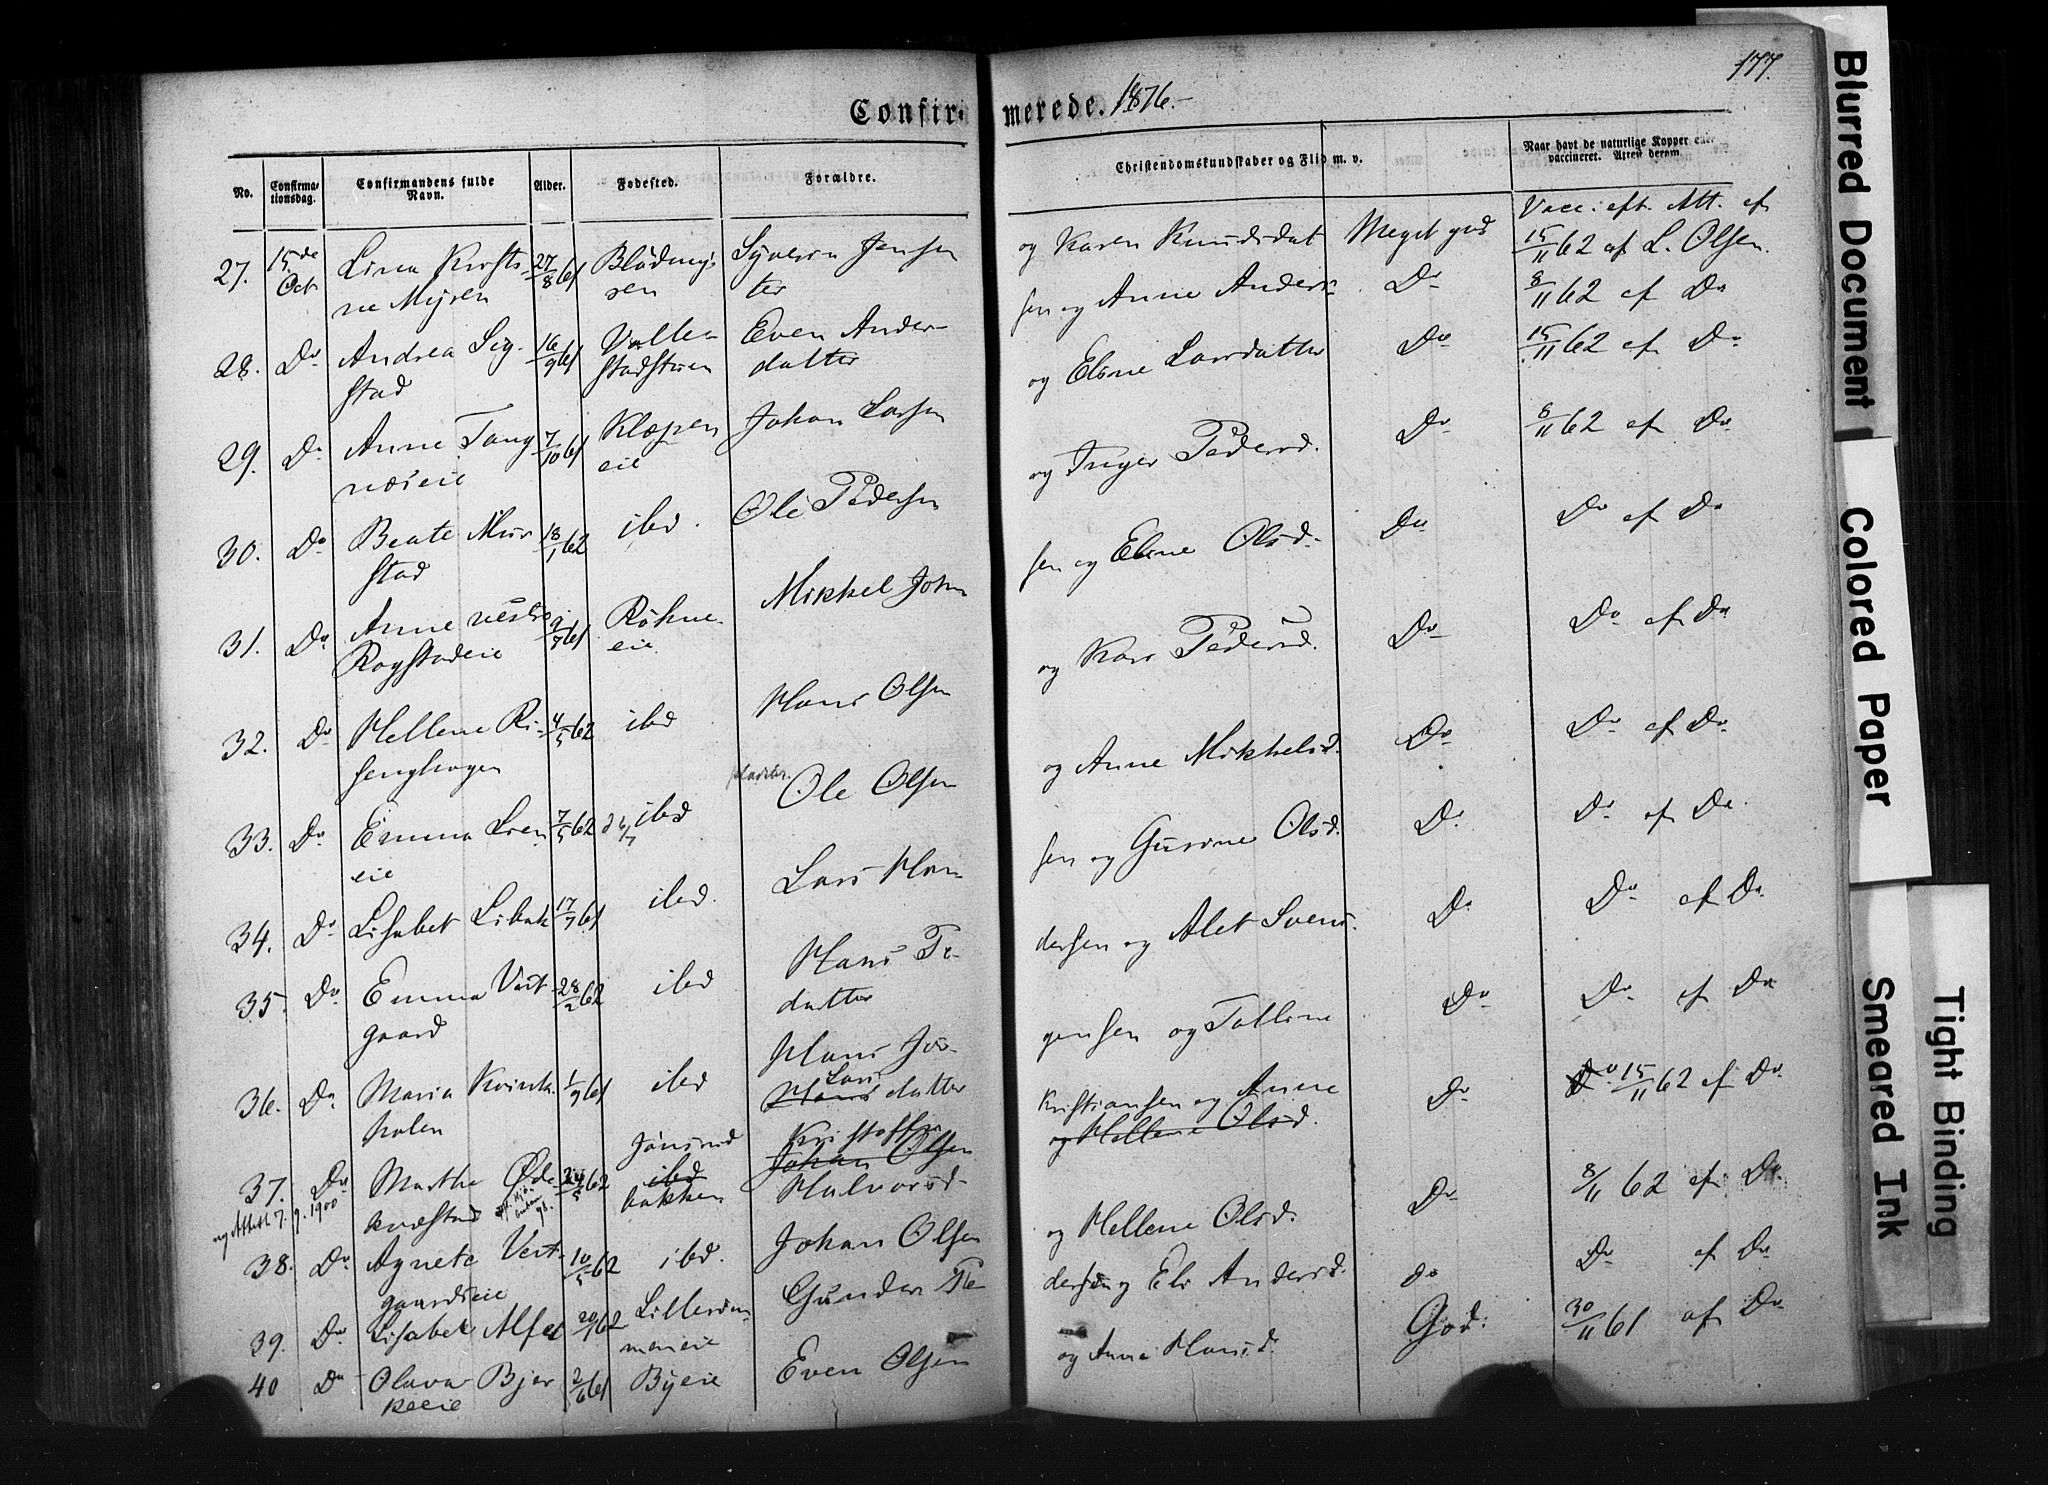 177.
Confir- merede. 1876.-
No. Confirma-tionsdag. Confirmandens fulde Navn. Alder. Fødested. Forældre. Christendomskundskaber og Flid m. v. Naar havt de naturlige Kopper eller vaccineret. Attest derom.
Vacc. eft. Att. af
27. 15de Oct Lina Kristi- 27/8 61 Syvern Jensen og Karen Knudsdat Meget god 15/11 62 af L. Olsen.
ne Myren sen ter
28. Do Andrea Sig- 16/9 61 Even Ander- sen og Anne Anders- Do 8/11 62 af Do
stad datter
29. Do Anne Tang- 7/10 61 Klæpen Johan Larsen og Eline Larsdatter Do 15/11 62 af Do
næseie eie
30. Do Beate Mur 18/1 62 ibd. Ole Pedersen og Inger Pedersd. Do 8/11 62 af Do
stad
31. Do Anne vestre 2/7 61 Røhne- Mikkel Johan sen og Eline Olsd. Do Do af Do
Rogstadeie eie
32. Do Hellene Ri- 4/5 62 ibd Hans Olsen og Kari Pedersd. Do Do af Do
senghagen
33. Do Emma Lien 7/5 62 ibd Ole Olsen og Anne Mikkelsd. Do Do af Do
eie
34. Do Lisabet Libak 17/7 61 ibd. Lars Han sen og Gurine Olsd. Do Do af Do
35. Do Emma Vest- 28/2 62 ibd Hans Pe- dersen og Alet Svens- Do Do af Do
gaard datter
36. Do Maria Kvink- 1/9 61 ibd Hans Jør- gensen og Talline Do Do af Do
holen Hans Lars datter
37. Do Marthe Øde 24/5 62 Jønsrud ibd Kristoffer Johan Olsen Kristiansen og Anne og Hellene Olsd. Do Do 15/11 62 af Do
kvæstad bakken Halvorsd.
og Attest 7. 9. 1900
38. Do Agnete Vest- 10/5 62 ibd. Johan Olsen og Hellene Olsd. Do 8/11 62 af Do
gaardseie
39. Do Lisabet Alfst 20/1 62 Gunder Pe dersen og Eli Andersd. do Do af Do
meneie
40 Do Olava Bjer 2/6 61 Byeie Even Olsen og Anne Hansd. God. 30/11 61 af Do
keeie
Blurred Document
Colored Paper
Smeared Ink
Tight Binding